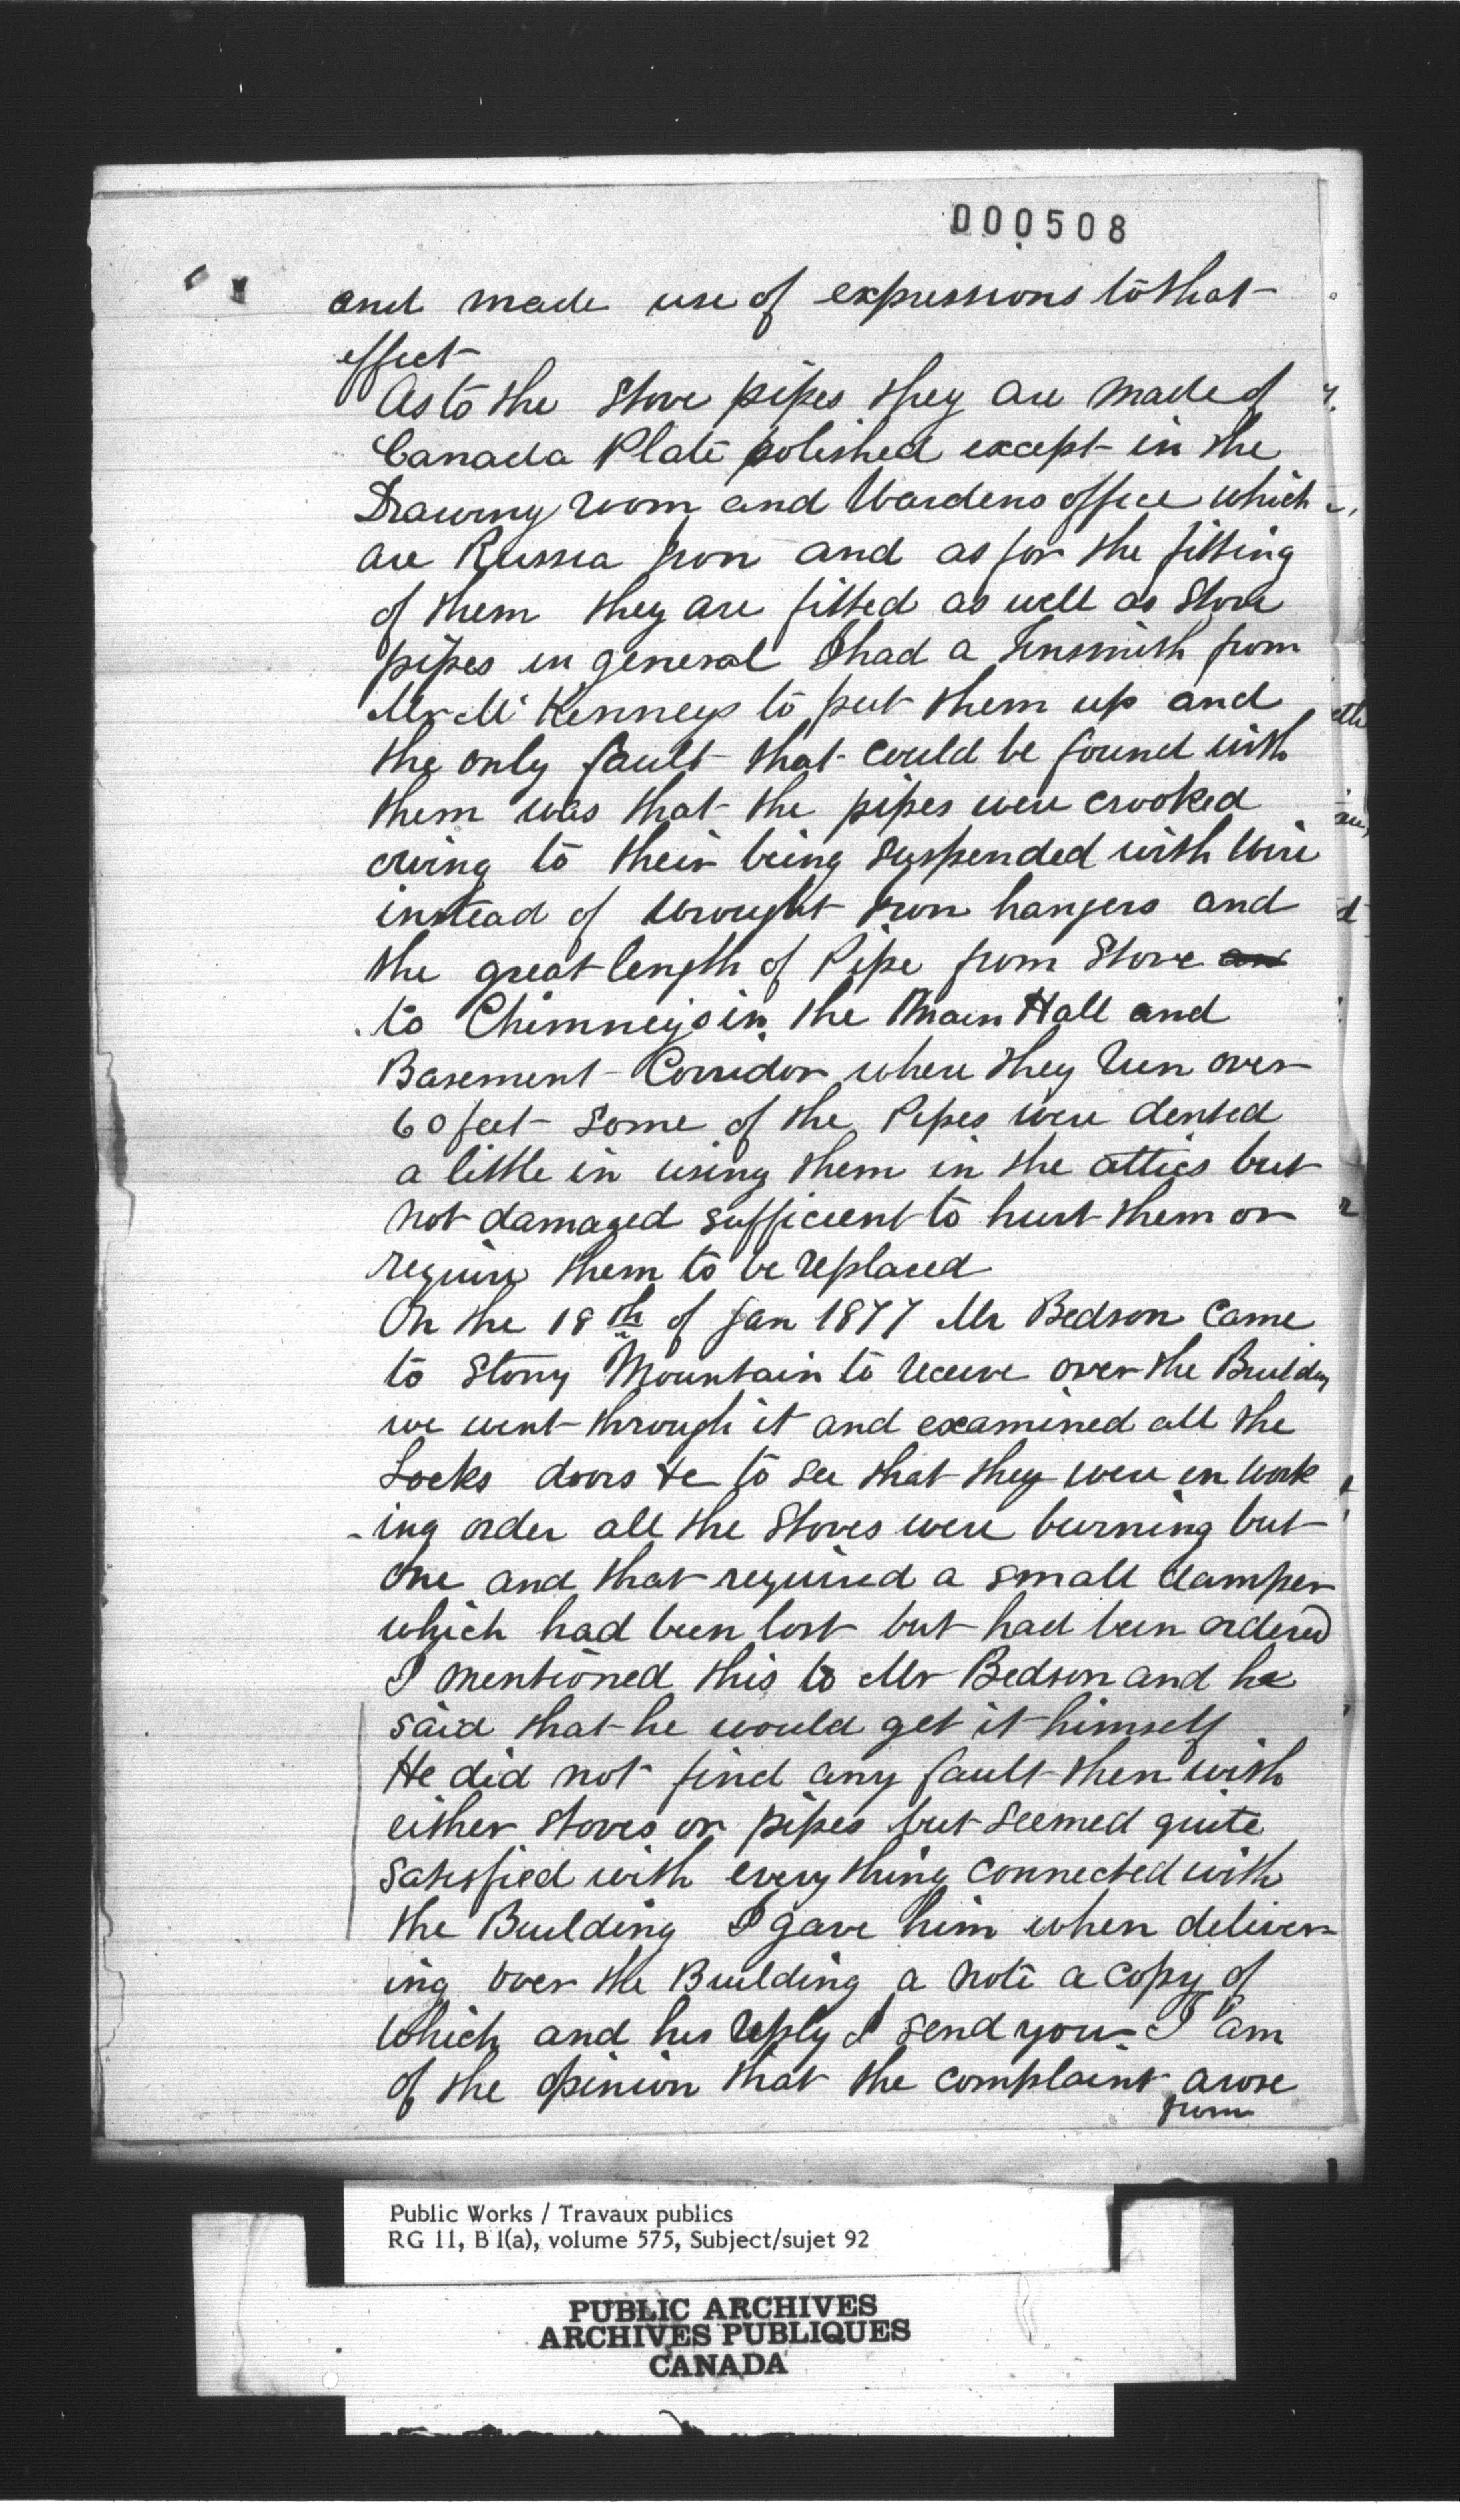 000508
and made use of expressions to that
effect
As to the Stove pipes they are made of
Canada Plate polished except in the
Drawing room and Wardens office which
are Russia Iron and as for the fitting
of them they are fitted as well as Stove
pipes in general I had a Tinsmith from
Mr McKenneys to put them up and
the only fault that could be found with
them was that the pipes were crooked
owing to their being suspended with Wire
instead of Wrought Iron hangers and
the great length of Pipe from Stove an
to Chimneys in the Main Hall and
Basement Corridor where they run over
60 feet some of the Pipes were dented
a little in using them in the attics but
not damaged sufficient to hurt them or
require them to be replaced
On the 18th of Jan 1877 Mr Bedson Came
to Stony Mountain to receive over the Building
we went through it and examined all the
Locks doors &c to see that they were in work
-ing order all the Stoves were burning but
one and that required a small damper
which had been lost but had been ordered
I mentioned this to Mr Bedson and he
said that he would get it himself
He did not find any fault then with
either stoves or pipes but seemed quite
satisfied with every thing connected with
the Building I gave him when deliver-
ing over the Building a note a copy of
which and his reply I send you I am
of the opinion that the complaint arose
from
Public Works / Travaux publics
RG 11, B 1(a), volume 575, Subject/sujet 92
PUBLIC ARCHIVES
ARCHIVES PUBLIQUES
CANADA